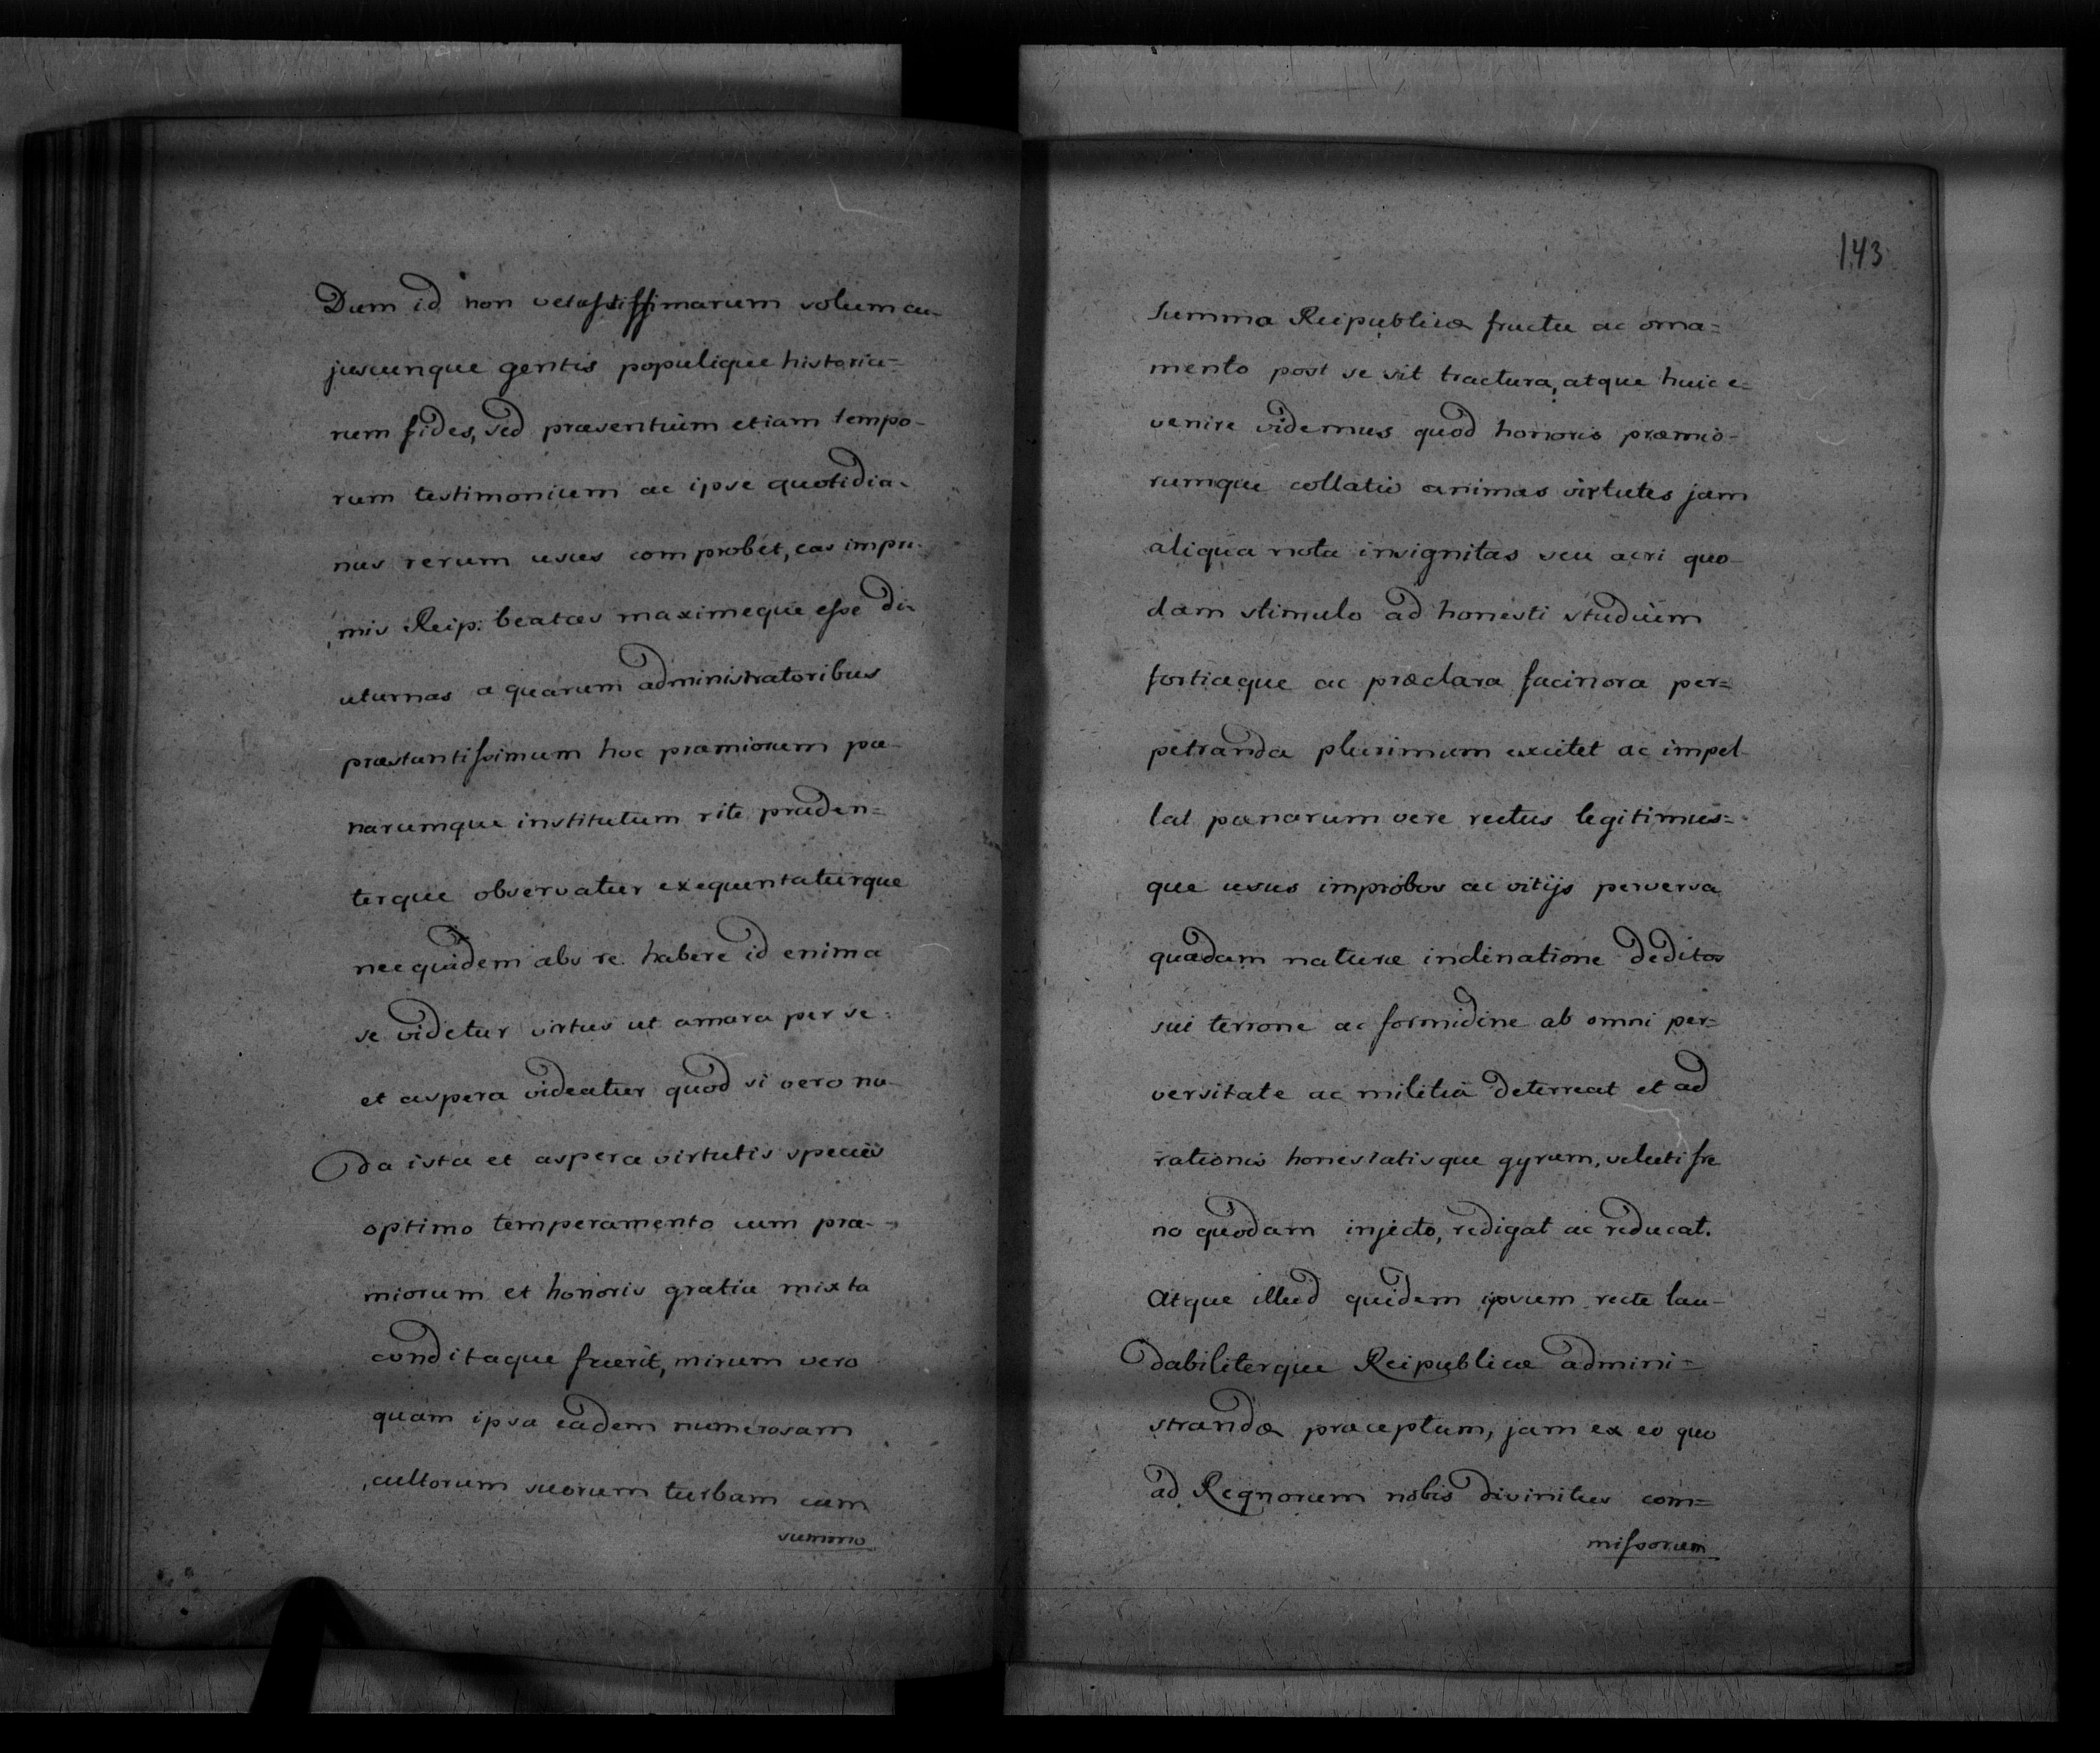 Dum id non vetustissimarum solum cu-
juscunque gentis populique historia=
rum fides, sed præsentium etiam tempo-
rum testimonium ac ipse quotidia-
nus rerum usus comprobet, eas impri-
mis Reip: beatas maximeque esse di-
uturnas a quarum administratoribus
præstantissimum hoc præmiorum pæ-
narumque institutum rite pruden=
terque observatur exequentaturque
nec quidem abs re habere id enim a
se videtur virtus ut amara per se
et aspera videatur quod si vero nu-
da ista et aspera virtutis species
optimo temperamento cum præ-
miorum et honoris gratia mixta
conditaque fuerit, mirum vero
quam ipsa eadem numerosam
cultorum suorum turbam cum
summo
143
summa Reipublicæ fructu ac orna=
mento post se sit tractura, atque huic e=
venire videmus quod honoris præmio-
rumque collatio animas virtutes jam
aliqua nota insignitas seu acri quo-
dam stimulo ad honesti studium
fortiaque ac præclara facinora per=
petranda plurimum excitet ac impel-
lat pænarum vere rectus legitimus=
que usus improbos ac vitijs perversa
quadam naturæ inclinatione deditos
sui terrore ac formidine ab omni per=
versitate ac militia deterreat et ad
rationis honestatisque gyrum, veluti fre
no quodam injecto, redigat ac reducat.
Atque illud quidem ipsum recte lau-
dabiliterque Reipublicæ admini=
strandæ præceptum, jam ex eo quo
ad Regnorum nobis divinitus com=
missorum